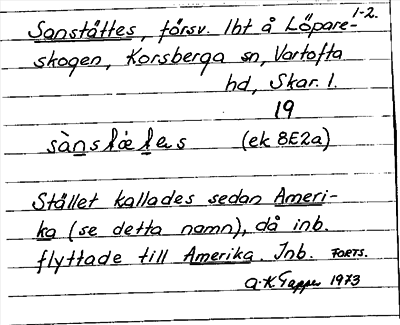 1-2.
Sanståttes, försv. lht å Löpare-
skogen, Korsberga sn, Vartofta
hd, Skar. l.
19
(ek 8E2a)
Stället kallades sedan Ameri-
ka (se detta namn), då inb.
flyttade till Amerika. Inb. FORTS.
A.K. 1973